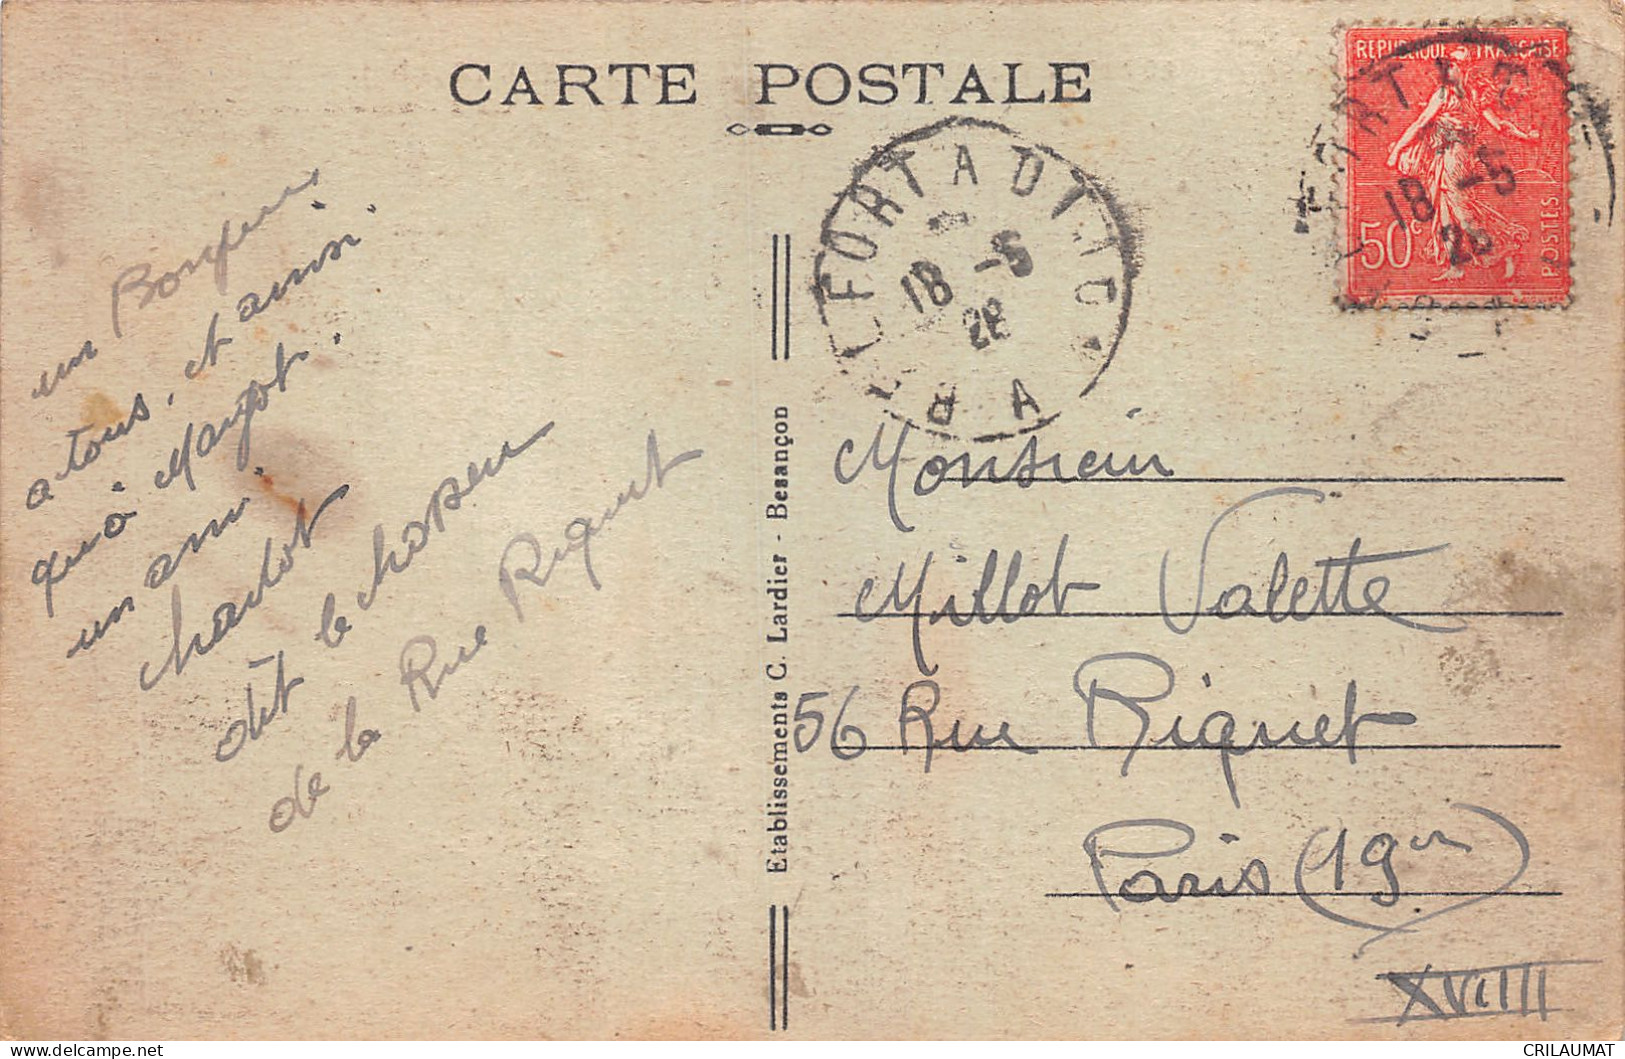 CARTE POSTALE
REPUBLIQUE FRANCAISE
50c
POSTES
18 -5
28
BELFORT A DIJON
18 -5
28
un Bonjour
a tous, et ainsi
qu'à Margot.
un ami.
Charlot
dit le
de la Rue Riquet
Etablissements C. Lardier - Besançon
Monsieur
Millot Valette
56 Rue Riquet
Paris (19em)
XVIIII
CRILAUMAT